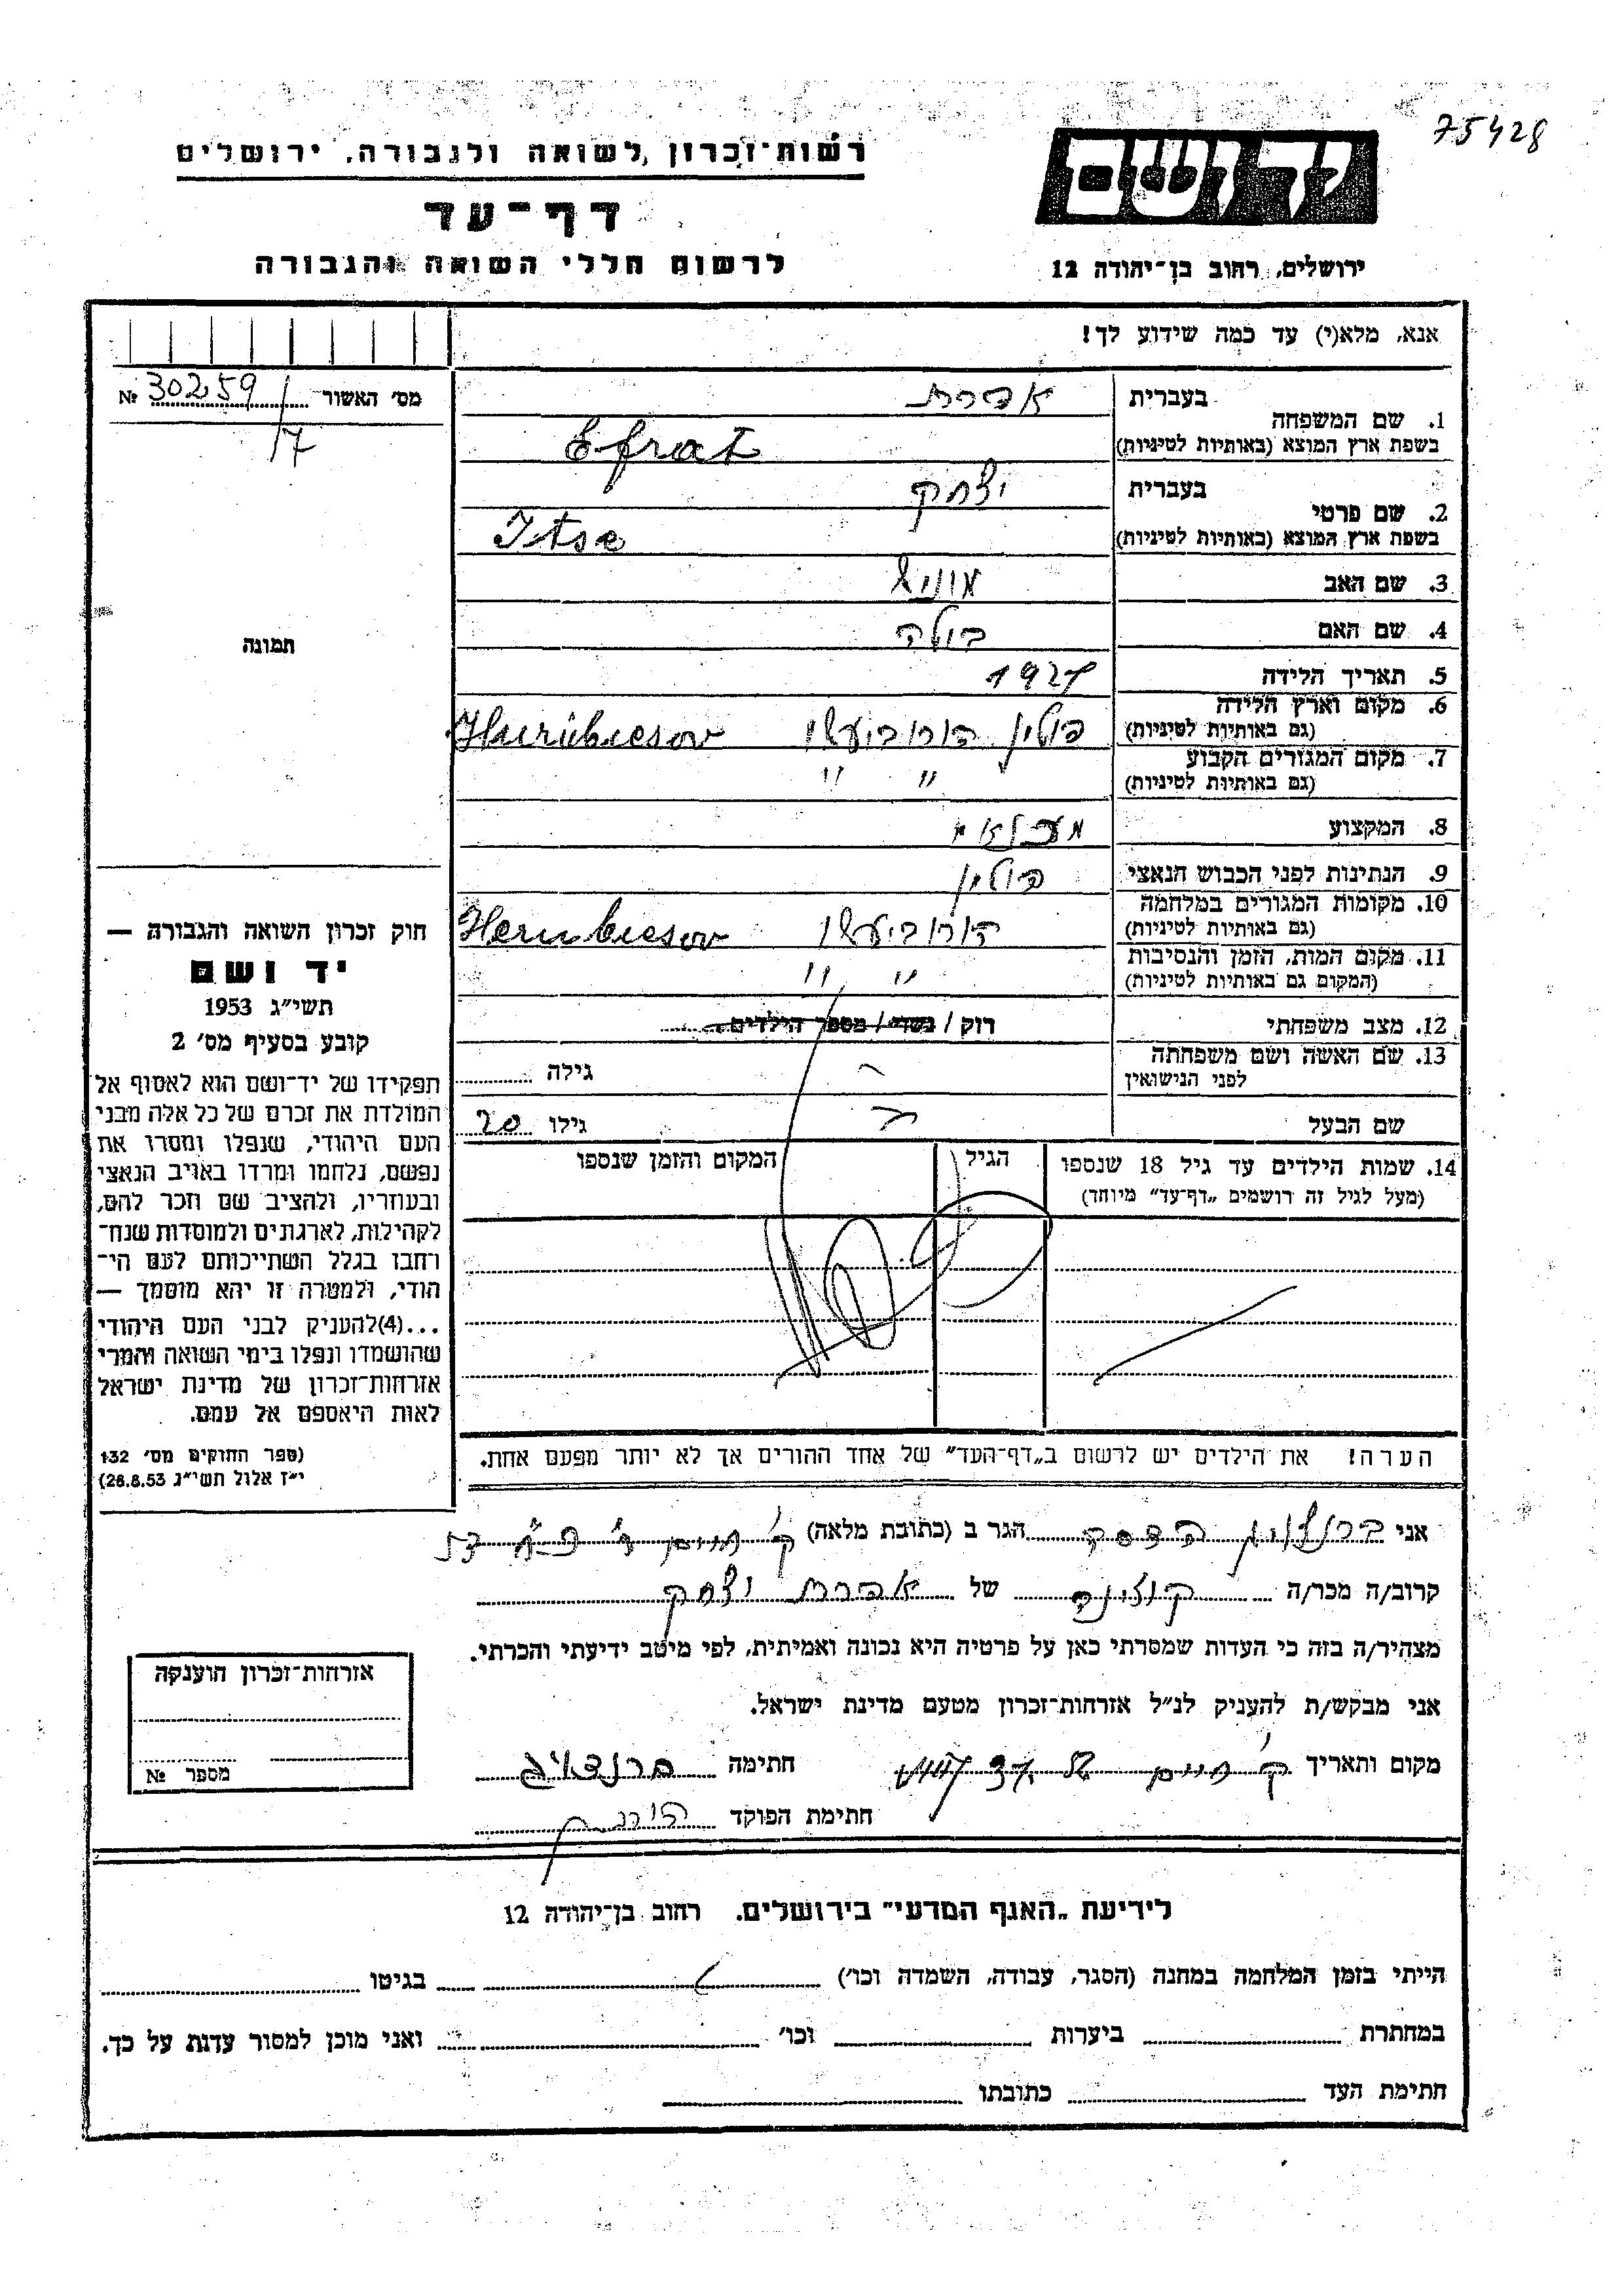 75428
יד ושם
רשות־זכרון לשואה ולגבורה, ירושלים
דף־עד
לרשום חללי השואה והגבורה
ירושלים, רחוב בן־יהודה 12
אנא, מלא(י) עד כמה שידוע לך!
מס׳ האשור № 30259/17
1. שם המשפחה בעברית אפרת
בשפת ארץ המוצא (באותיות לטיניות) Efrat
2. שם פרטי בעברית יצחק
בשפת ארץ המוצא (באותיות לטיניות) Itse
3. שם האב מוניש
4. שם האם בולה
5. תאריך הלידה
6. מקום וארץ הלידה
(גם באותיות לטיניות) פולין הורוביעשו Hurubiesov
7. מקום המגורים הקבוע
(גם באותיות לטיניות) " "
8. המקצוע
9. הנתינות לפני הכבוש הנאצי פולין
10. מקומות המגורים במלחמה
(גם באותיות לטיניות) הורוביעשו Herubiesov
11. מקום המות, הזמן והנסיבות
(המקום גם באותיות לטיניות) " "
12. מצב משפחתי רוק / נשוי / מספר הילדים
13. שם האשה ושם משפחתה
לפני הנישואין גילה
שם הבעל גילו 20
14. שמות הילדים עד גיל 18 שנספו
(מעל לגיל זה רושמים „דף־עד” מיוחד)
הגיל
המקום והזמן שנספו
הערה! את הילדים יש לרשום ב„דף־העד” של אחד ההורים אך לא יותר מפעם אחת.
תמונה
חוק זכרון השואה והגבורה —
יד ושם
תשי״ג 1953
קובע בסעיף מס׳ 2
תפקידו של יד־ושם הוא לאסוף אל
המולדת את זכרם של כל אלה מבני
העם היהודי, שנפלו ומסרו את
נפשם, נלחמו ומרדו באויב הנאצי
ובעוזריו, ולהציב שם וזכר להם,
לקהילות, לארגונים ולמוסדות שנח־
רחבו בגלל השתייכותם לעם הי־
הודי, ולמטרה זו יהא מוסמך —
...(4)להעניק לבני העם היהודי
שהושמדו ונפלו בימי השואה והמרי
אזרחות־זכרון של מדינת ישראל
לאות היאספם אל עמם.
(ספר החוקים מס׳ 132
י״ז אלול תשי״ג 28.8.53)
אני הדסה הגר ב (כתובת מלאה) ק׳ חיים
קרוב/ה מכר/ה של אפרת יצחק
מצהיר/ה בזה כי העדות שמסרתי כאן על פרטיה היא נכונה ואמיתית, לפי מיטב ידיעתי והכרתי.
אני מבקש/ת להעניק לנ״ל אזרחות־זכרון מטעם מדינת ישראל.
מקום ותאריך ק׳ חיים חתימה
חתימת הפוקד
אזרחות־זכרון הוענקה
מספר №
לידיעת „האגף המדעי” בירושלים. רחוב בן־יהודה 12
הייתי בזמן המלחמה במחנה (הסגר, עבודה, השמדה וכו׳) בגיטו
במחתרת ביערות וכו׳ ואני מוכן למסור עדות על כך.
חתימת העד כתובתו